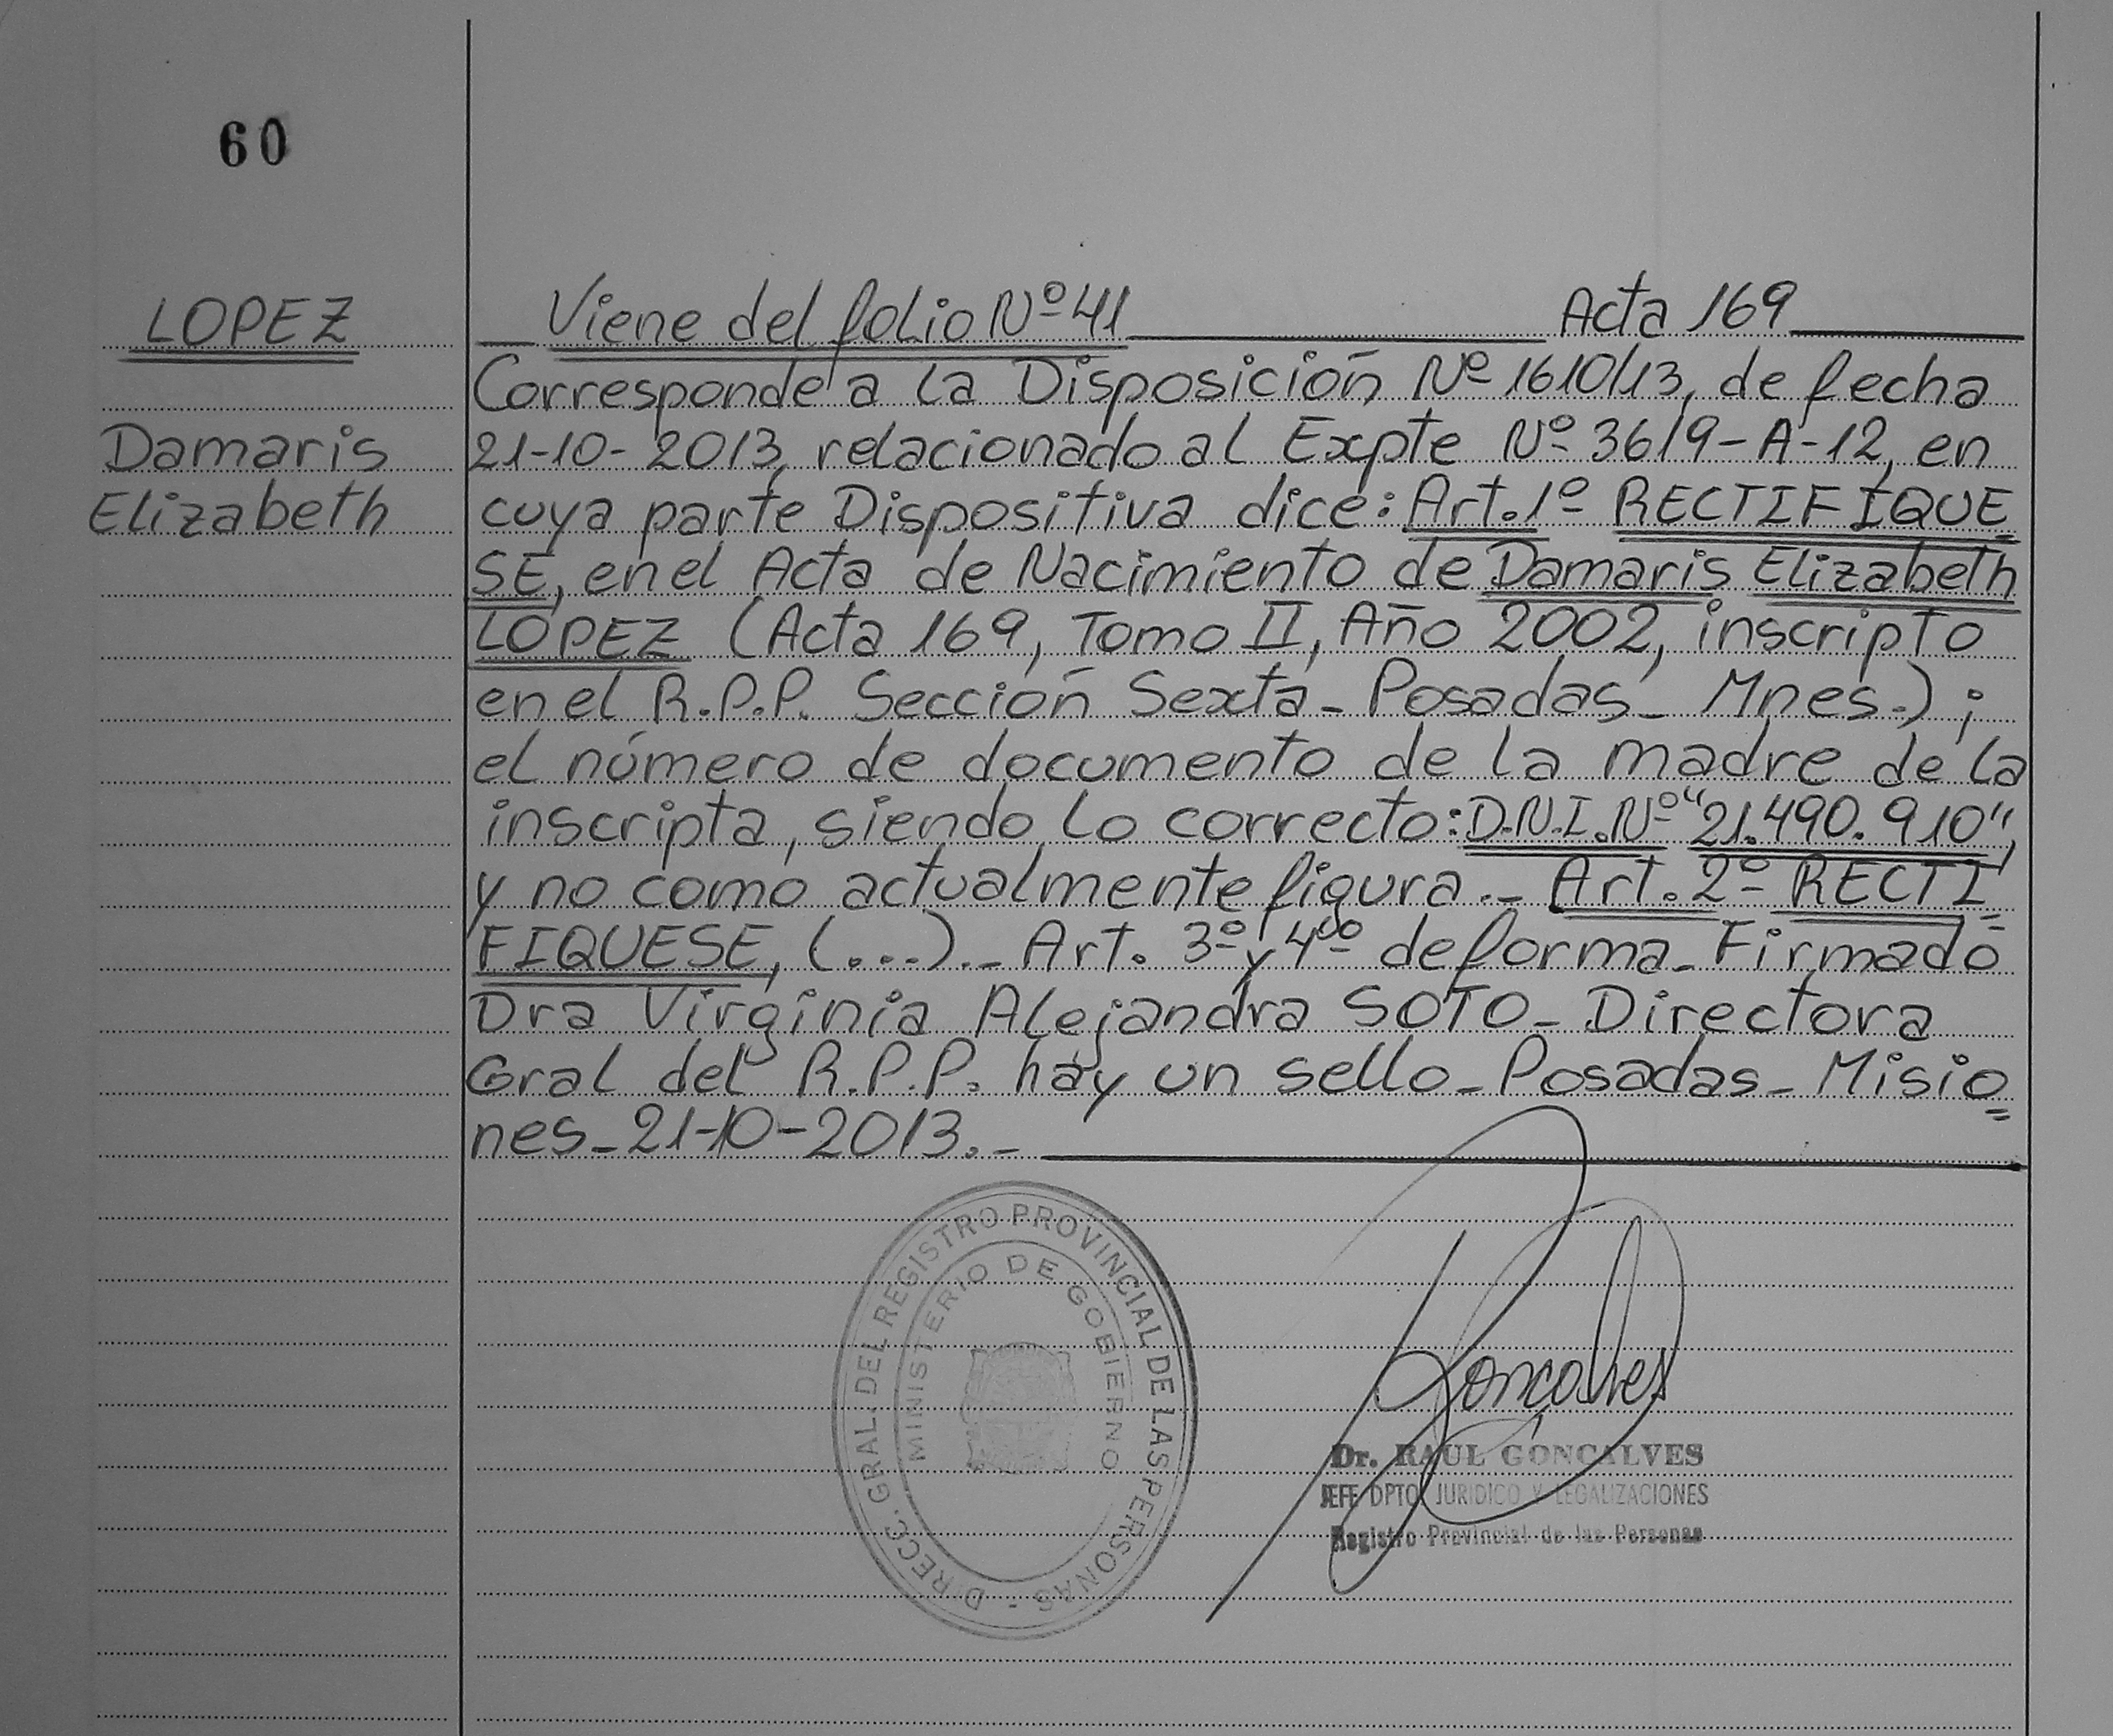 60
LOPEZ
Damaris
Elizabeth
Viene del folio Nº 41 Acta 169
Corresponde a la Disposición Nº 1610/13, de fecha
21-10-2013, relacionado al Expte Nº 3619-A-12, en
cuya parte Dispositiva dice: Art. 1º RECTIFIQUE
SE, en el Acta de Nacimiento de Damaris Elizabeth
LOPEZ (Acta 169, Tomo II, Año 2002, inscripto
en el R.P.P. Sección Sexta - Posadas - Mnes.) ;
el número de documento de la madre de la
inscripta, siendo lo correcto: D.N.I. Nº "21.490.910",
y no como actualmente figura._ Art. 2º RECTI=
FIQUESE, (...)._ Art. 3º y 4º de forma_ Firmado
Dra Virginia Alejandra SOTO_ Directora
Gral del R.P.P. hay un sello_ Posadas_ Misio=
nes_ 21-10-2013._
DIRECC. GRAL. DEL REGISTRO PROVINCIAL DE LAS PERSONAS -
MINISTERIO DE GOBIERNO
Gonçalves
Dr. RAUL GONCALVES
JEFE DPTO JURIDICO Y LEGALIZACIONES
Registro Provincial de las Personas